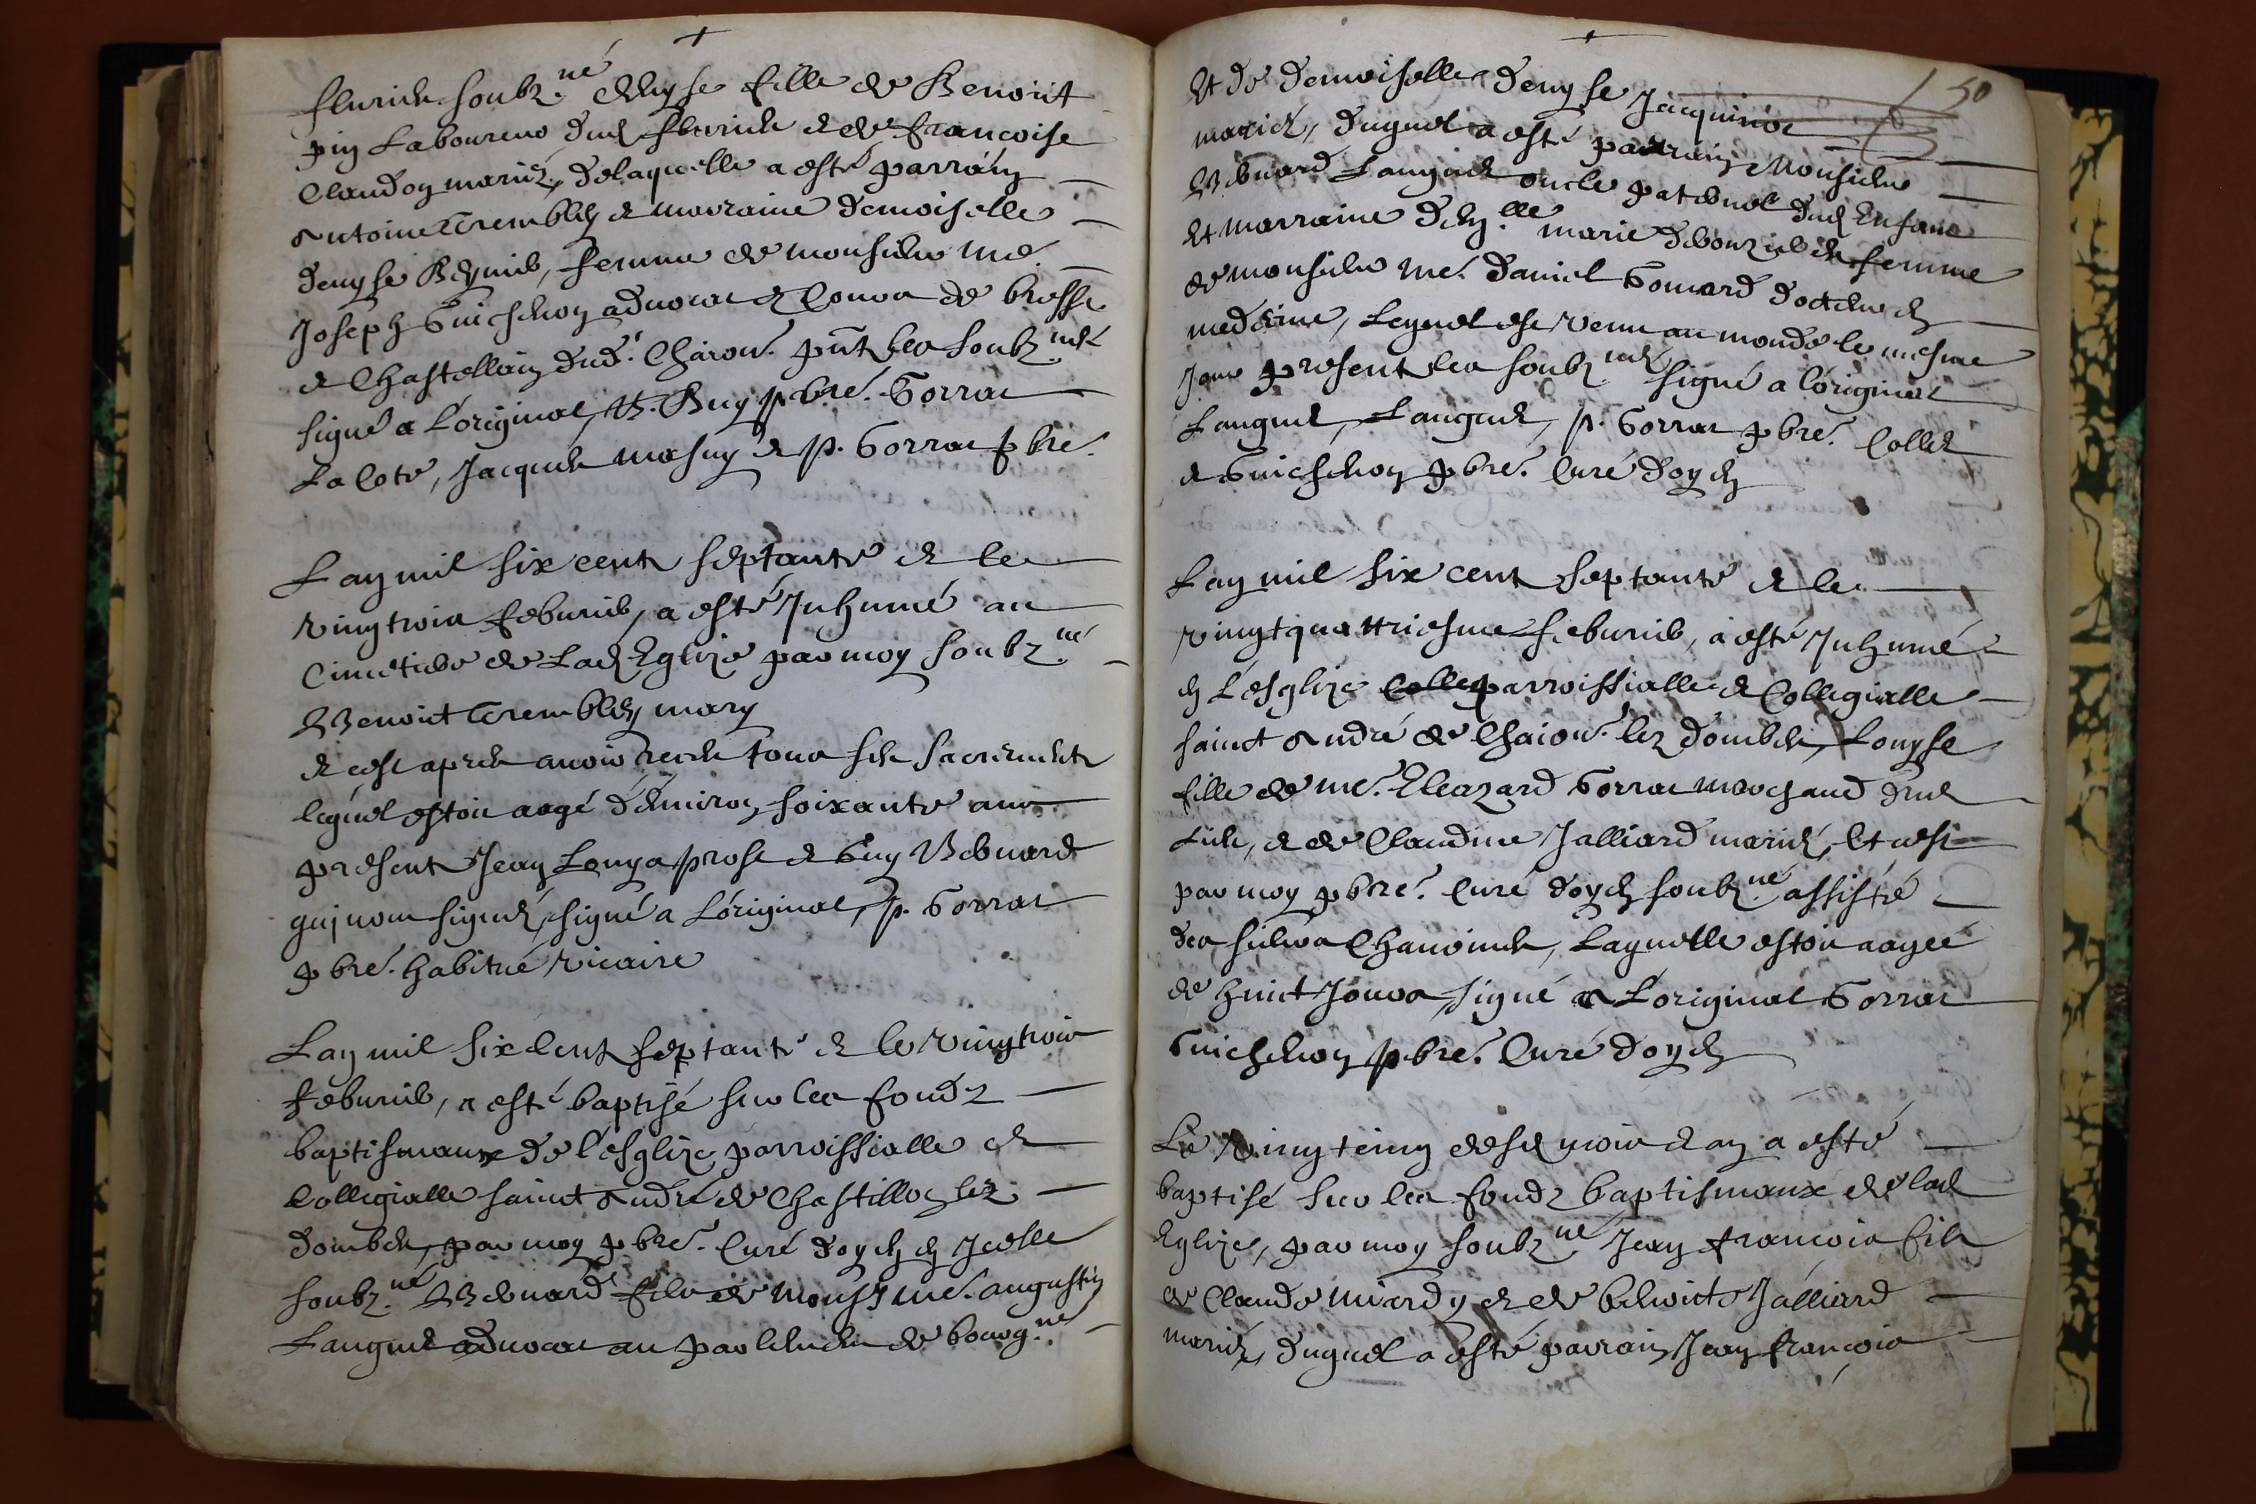 fleurieu soubz.né denyse fille de Benoist
pin Laboureur dud fleurieu et de francoise
Claudon mariez, delaquelle a esté parrain
Antoine Trembley et marraine demoiselle
denyse Reynie, femme de monsieur me.
Joseph Guichenon advocat
et Chastellain dud. Chaion. pnt les soubz.
signé a Loriginal, B. Buy pbre. Gorrat
La Coté, Jacques et p. Gorrat pbre.
Lan mil six cent septante et le
vingtrois feburier, a esté Inhumé au
Cimetiere de Lad Eglize par moy soubz.né
Benoict Trembley mary
et cest apres avoir receu tous ses sacrements
lequel estoit aagé d'environ soixante ans
present Jean Louys prost et Guy Bernard
qui nont signés, signé a Loriginal, p. Gorrat
pbre. habitué vicaire
Lan mil six Cent septante et le vingtrois
feburier, a esté baptisé sur les fondz
baptismaux de l'esglize parroissialle et
Collegialle sainct André de Chastillon lez
dombes, par moy pbre. Curé doyen en Icelle
soubz.né Bernard filz de Mons.r me. augustin
Languet advocat au parlement de bourg.ne
150
Et de demoiselle denyse Jacquinot
mariés, duquel a esté parrain Monsieur
Bernard Languet oncle paternel dud Enfant
Et marraine dem.lle marie femme
de monsieur me. daniel Gomard docteur en
medecine, Lequel est venu au monde le mesme
Jour present les soubz.nés signé a l'original
Languet, Languet, p. Gorrat pbre. Collet
et Guichenon pbre. Curé doyen
Lan mil six cent septante et le
vingtquattriesme feburier, a esté Inhumé
en L'esglize parroissialle et Collegialle
sainct André de Chaion. lez dombes, Louyse
fille de me. Eleazard Gorrat marchand dud
Lieu, et de Claudine Jalliard mariés, Et cest
par moy pbre. Curé doyen soubz.né assisté
des sieurs Chanoines, Laquelle estoit aagée
de huict Jours, signé a L'original Gorrat
Guichenon pbre. Curé doyen
Le vingtcinq desd mois et an a esté
baptisé sur les fondz baptismaux de lad
Eglize, par moy soubz.né Jean francois filz
de Claude miardy et de benoiste Jalliard
mariés, duquel a esté parrain Jean francois